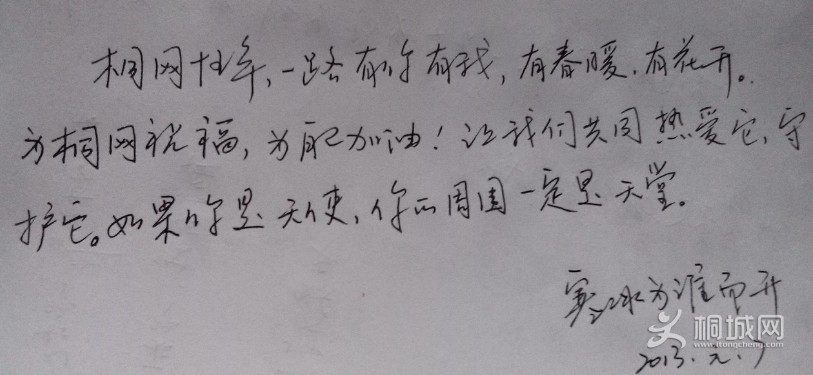 桐网十年,一路有你有我,有春暖,有花开。
为桐网祝福,为配加油!让我们共同热爱它,守
护它。如果你是天使,你的周围一定是天堂。
为谁而开
桐城网
www.itongcheng.com
2013.元.7